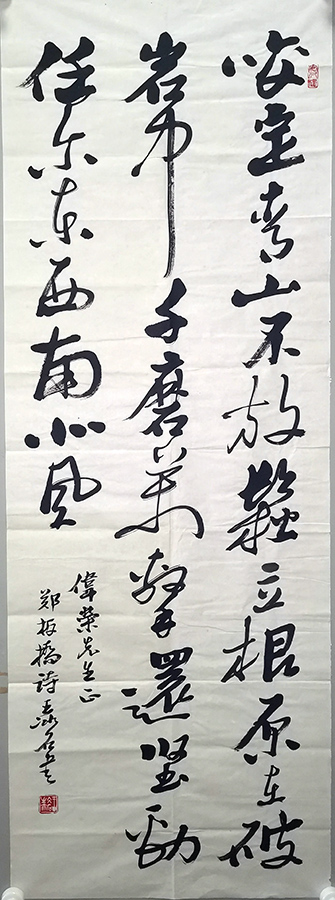 咬定青山不放鬆立根原在破
岩中千磨萬擊還堅勁
任尔东西南北风
偉榮先生正
郑板橋詩